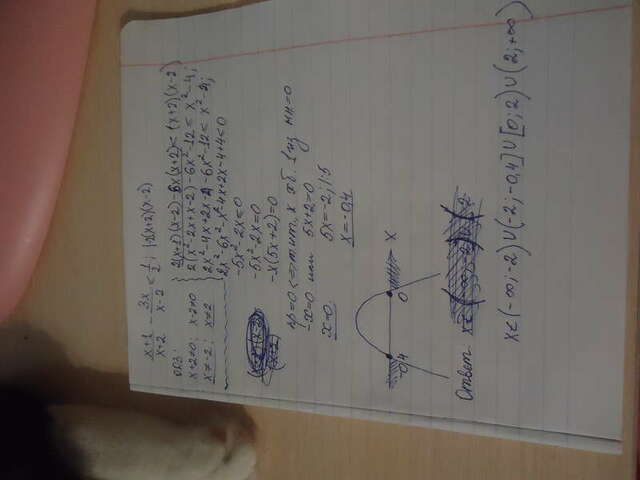 x+1/x-2 - 3x/x-2 < 1/2; |·2(x+2)(x-2)
ОДЗ:
x+2≠0; x-2≠0
x≠-2; x≠2
2(x+1)(x-2)-6x(x+2)<(x+2)(x-2)
2(x²-2x+x-2)-6x²-12≤x²-4;
2x²-4x+2x-4-6x²-12≤x²-4;
2x²-6x²-x²-4x+2x-4+4<0
-5x²-2x≤0
-5x²-2x=0
-x(5x+2)=0
пр=0<=>т.и т.т.к хотя об. 1 из мн=0
-x=0 или 5x+2=0
x=0 5x=-2;|:5
x=-0,4
-0,4 0 x
Ответ:
x<(-∞;-2)∪(-2;-0,4]∪[0;2)∪(2;+∞)